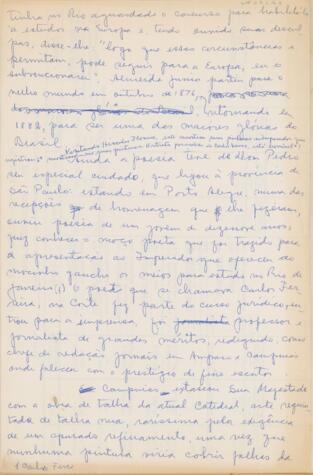 tinha no Rio aguardado o concurso para habilitá-lo
a estudos na Europa e, tendo ouvido suas descul
pas, disse-lhe: "logo que essas circunstancias o
permitam, pode seguir para a Europa, eu o
subvencionarei". Almeida Junior partiu para o
velho mundo em outubro de 1876,
retornando em
1882, para ser uma das maiores glorias do
Brasil.
Ainda a poesia teve de dom Pedro
seu especial cuidado, que ligou à provincia de
São Paulo. estando em Porto Alegre, numa das
recepções de homenagem que lhe fizeram,
ouviu poesia de um jovem de dezenove anos,
quiz conhecer o moço poeta que foi trazido para
a apresentação ao Imperador que ofereceu ao
mocinho gaucho os meios para estudo no Rio de
Janeiro (1) O poeta que se chamava Carlos Fer
reira, na Corte fez parte do curso juridico, en
trou para a imprensa, foi professor e
jornalista de grandes meritos, redigindo, como
chefe de redação jornais em Amparo e Campinas
onde faleceu com o prestigio de fino escritor.
Em Campinas, estando Sua Magestade
com a obra de talha da atual Catedral, arte requin
tada de talha nua, rarissima pela exigencia
de um apurado refinamento, uma vez que
nenhuma pintura viria cobrir falhas da
1 Carlos Ferrei